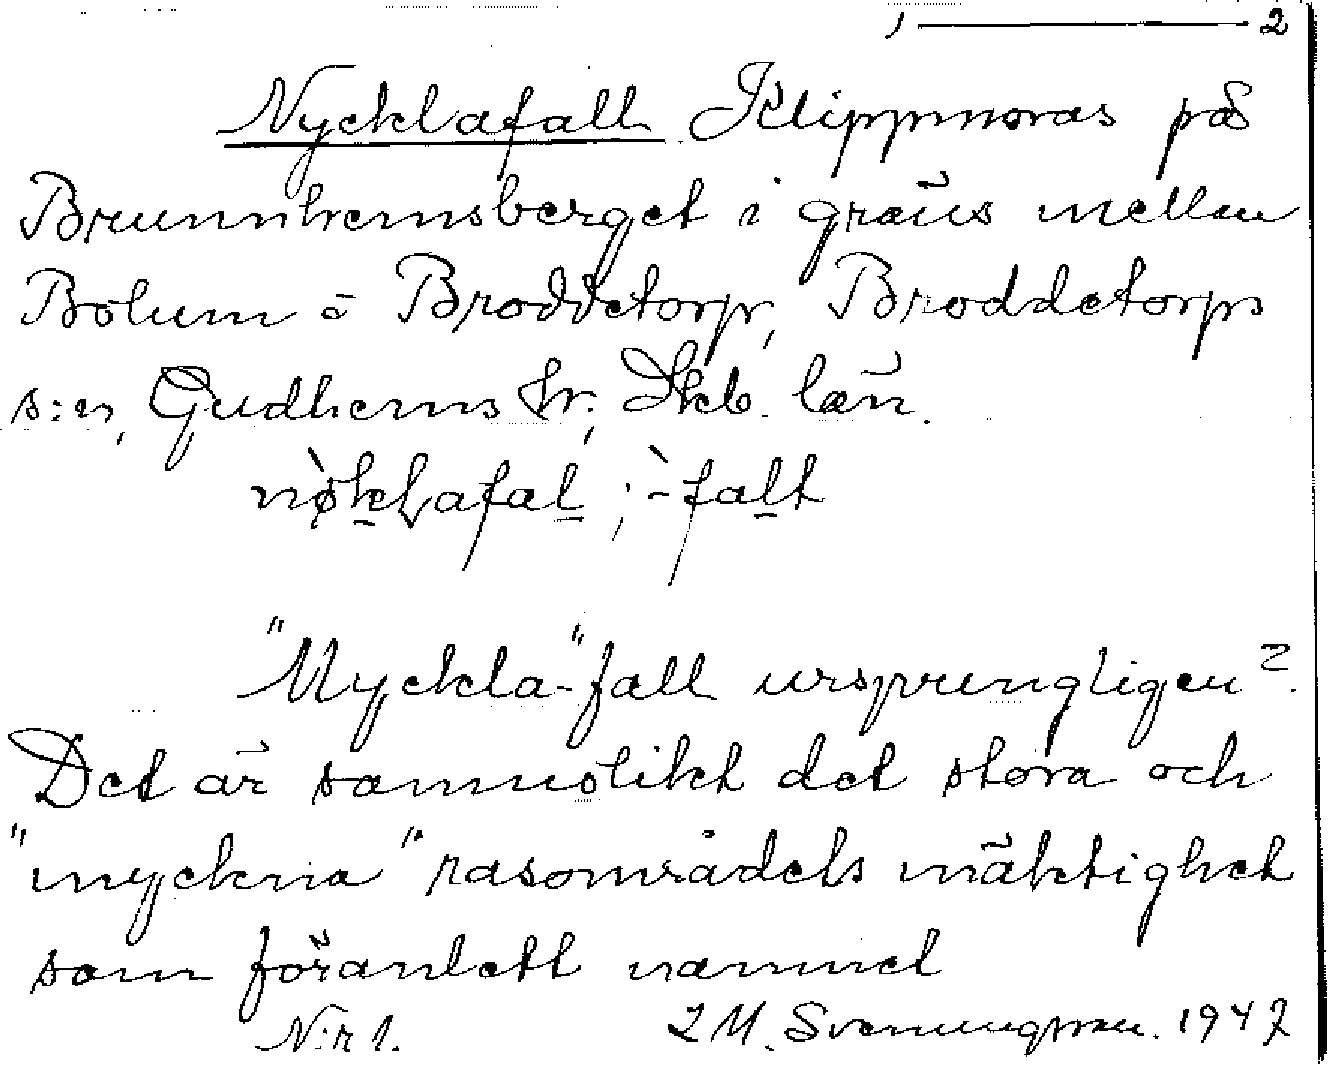 1 — 2
Nycklafall Klippmoras på
Brunnhemsberget i gräns mellan
Bolum å Broddetorp, Broddetorps
s:n, Gudhems hr., Skb. län.
nøklafal ; -falt
"Myckla-"fall ursprungligen?
Det är sannolikt det stora och
"myckna" rasområdets mäktighet
som föranlett namnet
N:r 1. L M. Svenungsson. 1947